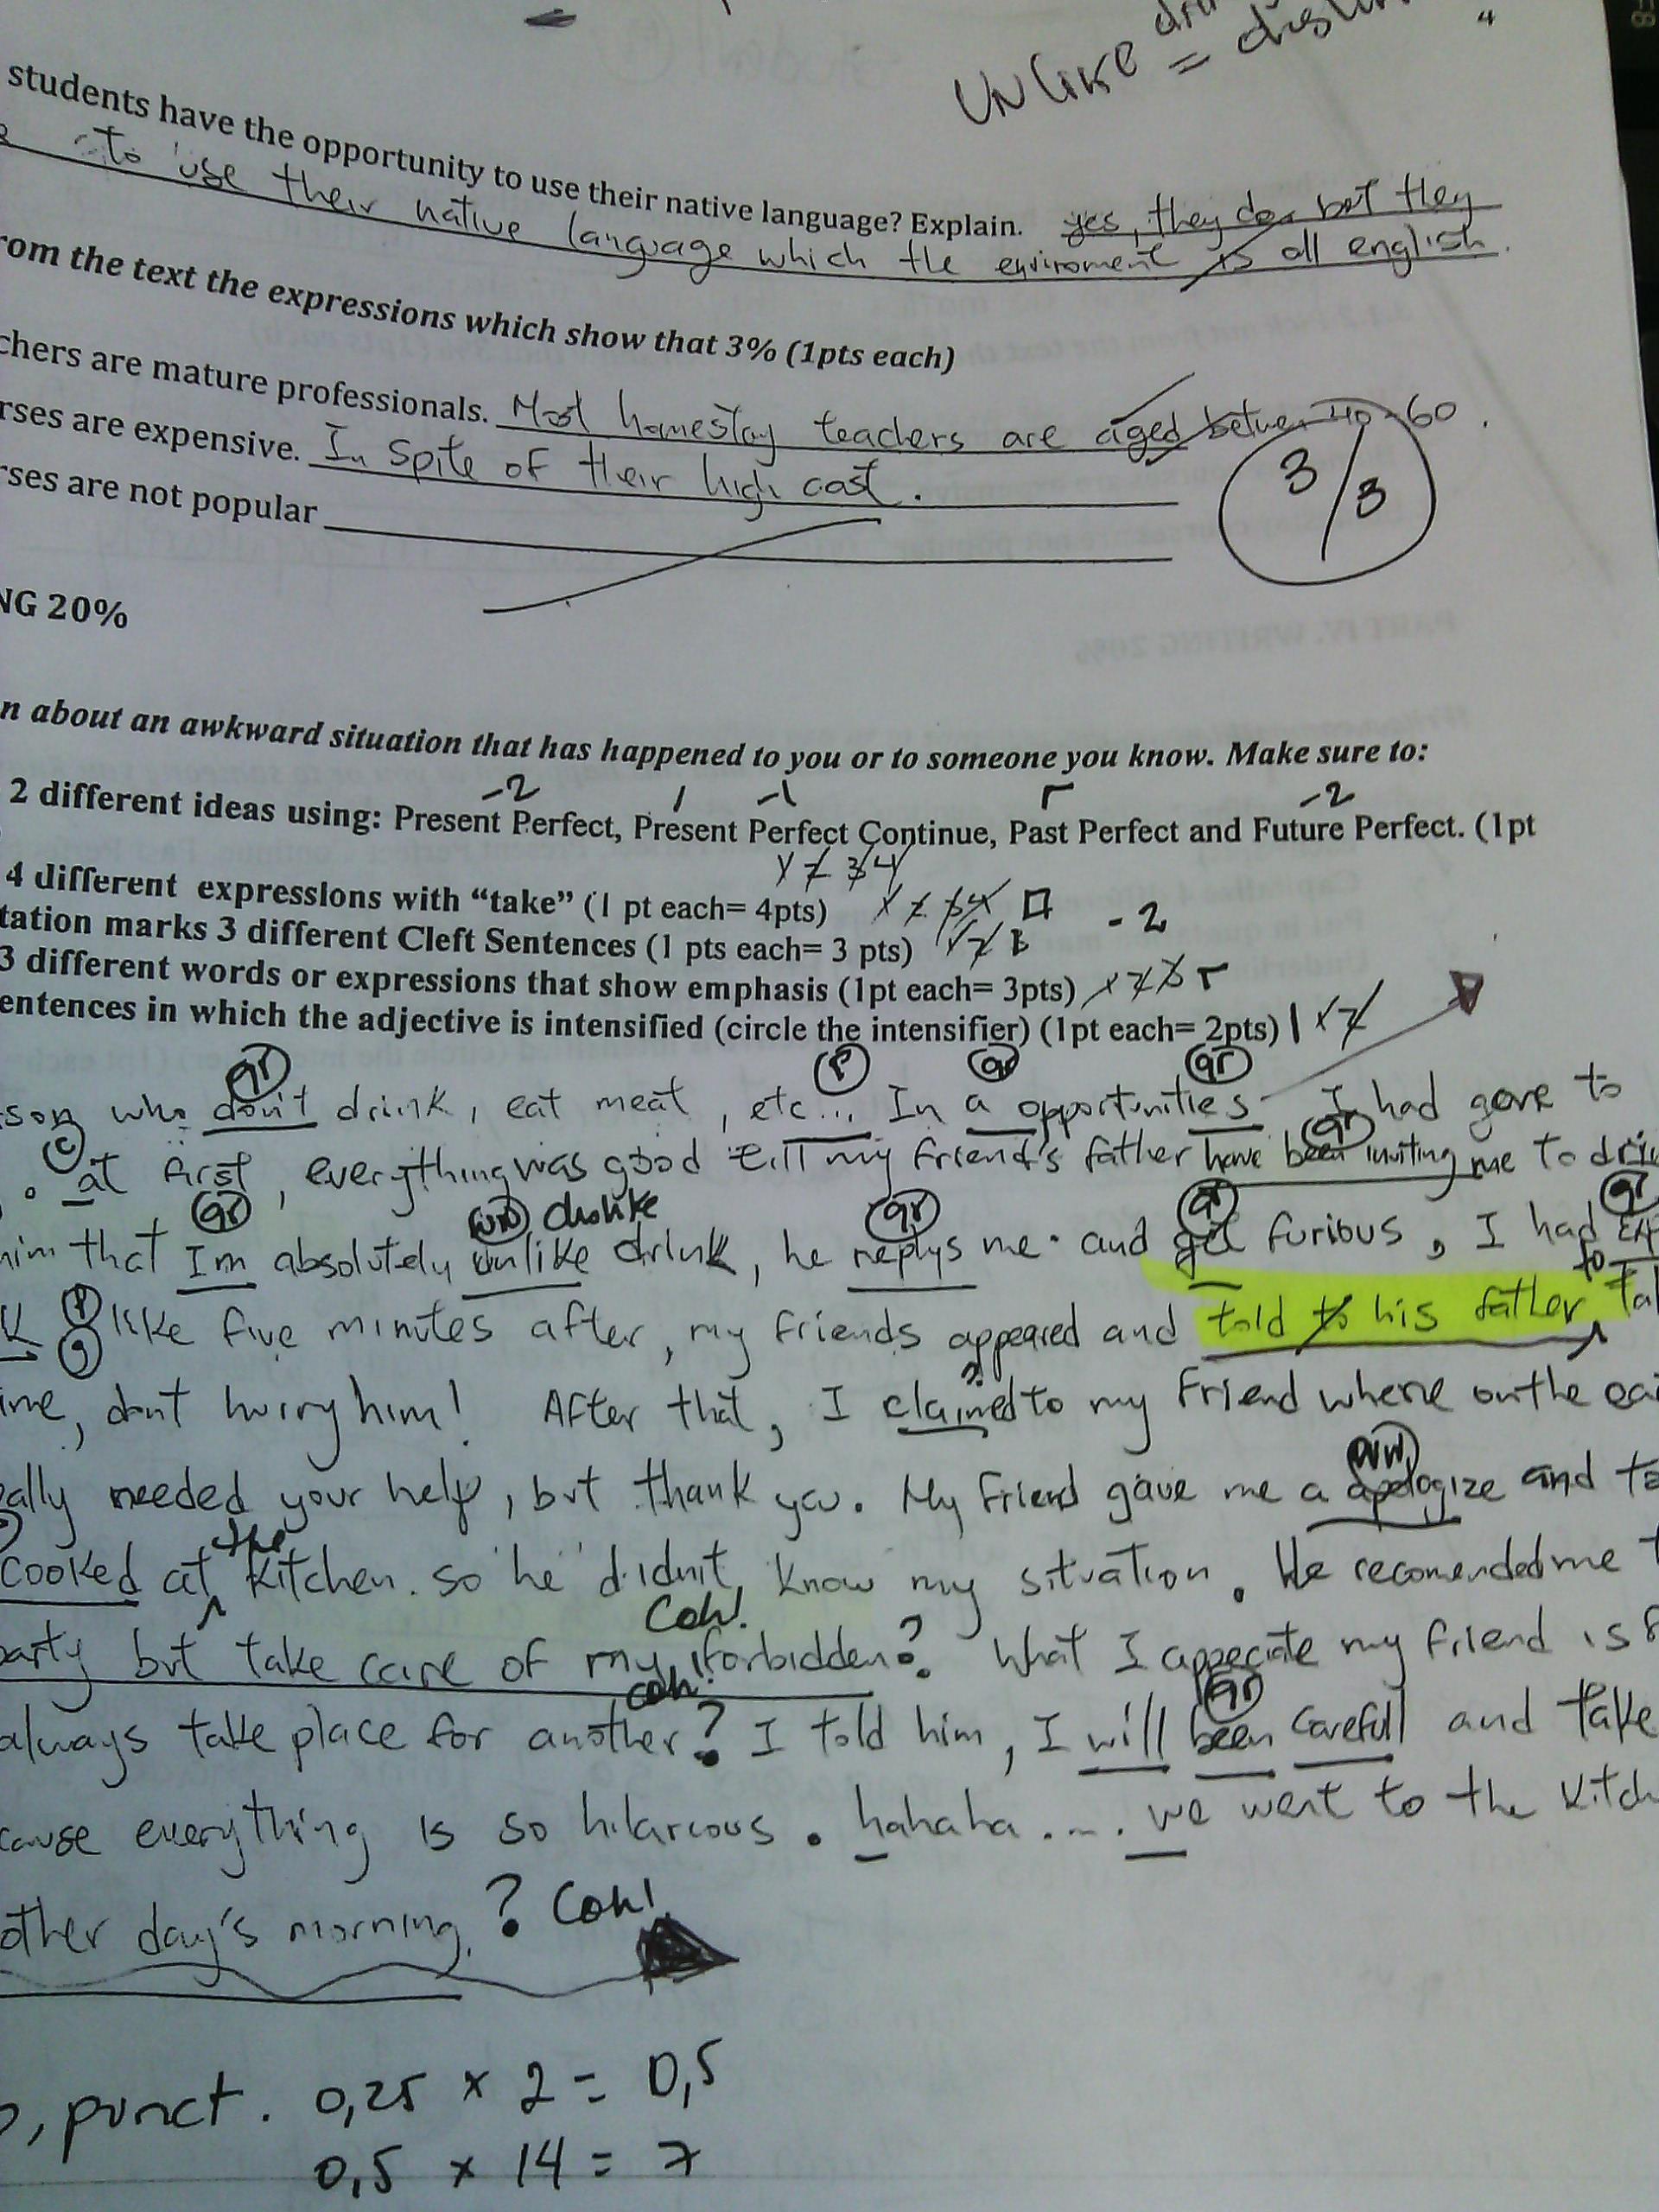 UNlike =
students have the opportunity to use their native language? Explain. yes, they do but they
to use their native language which the enviroment is all english.
rom the text the expressions which show that 3% (1pts each)
chers are mature professionals. Most homestay teachers are aged between 40-60.
rses are expensive. In spite of their high cost.
rses are not popular
3/3
NG 20%
n about an awkward situation that has happened to you or to someone you know. Make sure to:
-2 / -1 r -2
2 different ideas using: Present Perfect, Present Perfect Continue, Past Perfect and Future Perfect. (1pt
1 2 3 4
4 different expressions with "take" (1 pt each= 4pts)
tation marks 3 different Cleft Sentences (1 pts each= 3 pts) -2
3 different words or expressions that show emphasis (1pt each= 3pts)
entences in which the adjective is intensified (circle the intensifier) (1pt each= 2pts)
gr P gr gr
son who don't drink, eat meat, etc... In a opportunities I had gone to
C gr
. at first, everything was good till my friend's father have been inviting me to
gr ww dislike gr gr gr
him that Im absolutely unlike drink, he replys me. and get furious, I had
P to
like five minutes after, my friends appeared and told to his father
?
ime, don't hurry him! After that, I claimed to my friend where on the
ww
eally needed your help, but thank you. My friend gave me a apologize and
the
cooked at kitchen. so he didn't know my situation. He recomended me
Coh!
party but take care of my forbidden? What I appreciate my friend is
coh! gr
always take place for another? I told him, I will been carefull and take
cause everything is so hilarious. hahaha.... we went to the
other day's morning. ? Coh!
, punct. 0,25 x 2 = 0,5
0,5 x 14 = 7